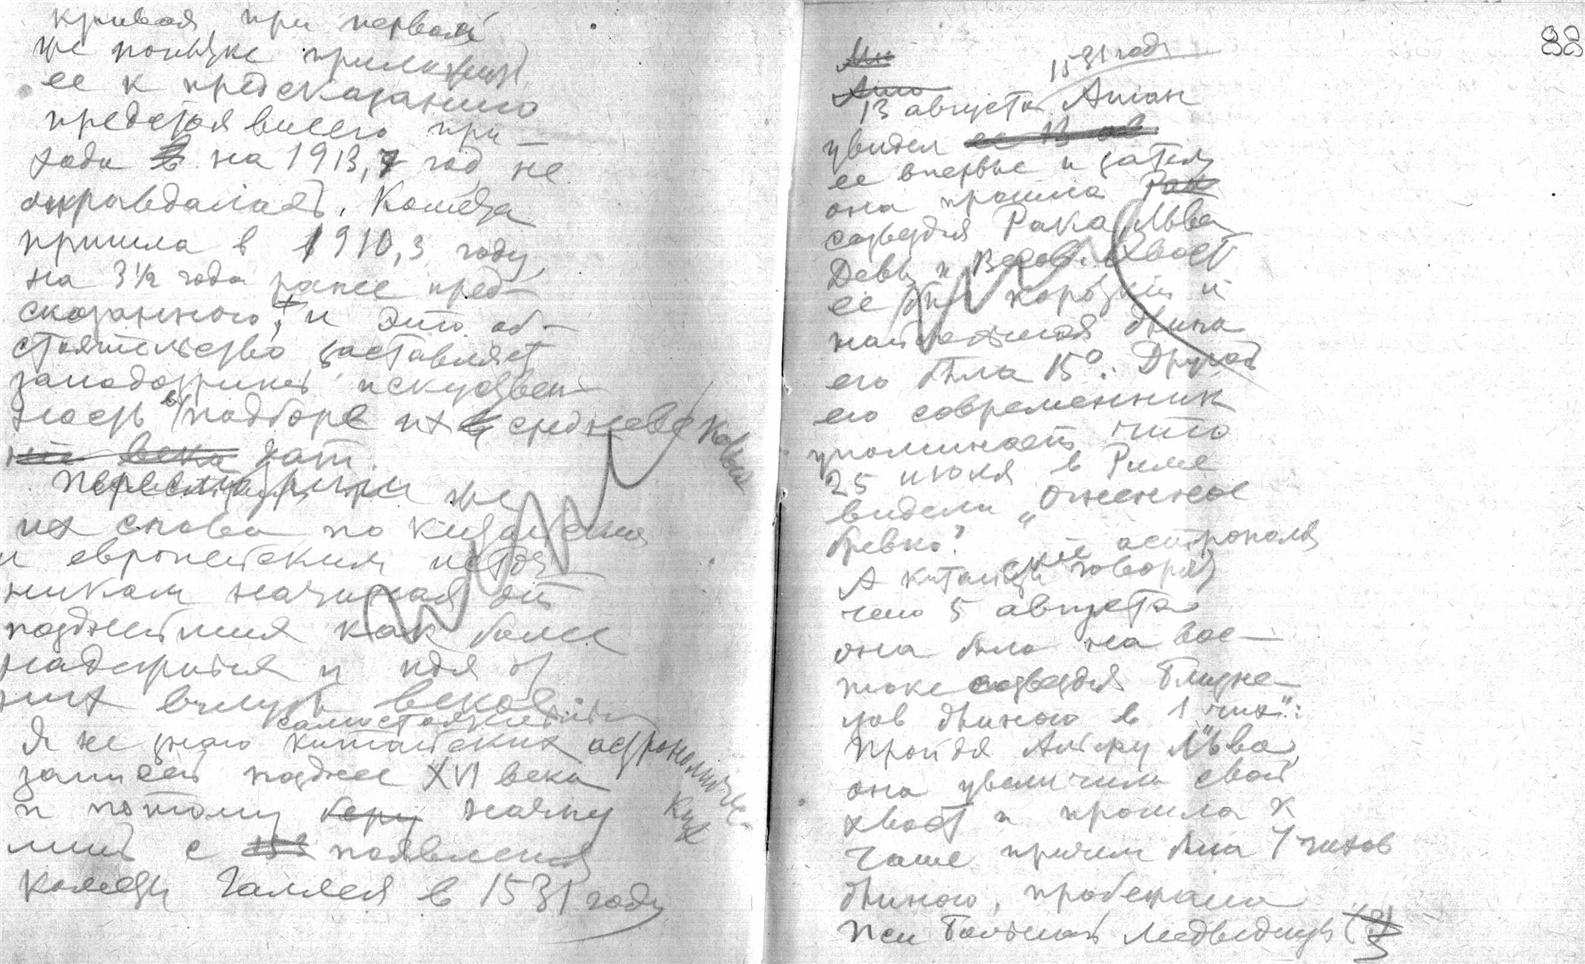 кривая при первой
же попытке приложить
ее к предсказанию
предстоявшего при-
хода на 1913,7 год не
оправдалась. Комета
пришла в 1910,3 году,
на 3½ года ранее пред-
сказанного, и это об-
стоятельство заставляет
заподозрить искусствен-
ность в подборе их средневековых
дат.
Пересмотрим же
их снова по китайским
и европейским источ-
никам начиная от
позднейших как более
надежных и идя от
них вглубь веков.
Я не знаю самостоятельных
китайских астрономических
записей позднее XVI века
и потому начну
лишь с появления
кометы Галлея в 1531 году
88
1531 год
13 августа Апиан
увидел
ее впервые и затем
она прошла
созвездия Рака, Льва
Девы и Весов. Хвост
ее был короткий и
наибольшая длина
его была 15°. Другой
его современник
упоминает что
25 июля в Риме
видели „огненное
бревно".
А китайские астрологи
говорят
что 5 августа
она была на вос-
токе созвездия Близне-
цов длиною в 1 чих":
Пройдя Льва,
она увеличила свой
хвост и прошла к
Чаше причем была 7 чихов
длиною, пробежала
Большой Медведицы